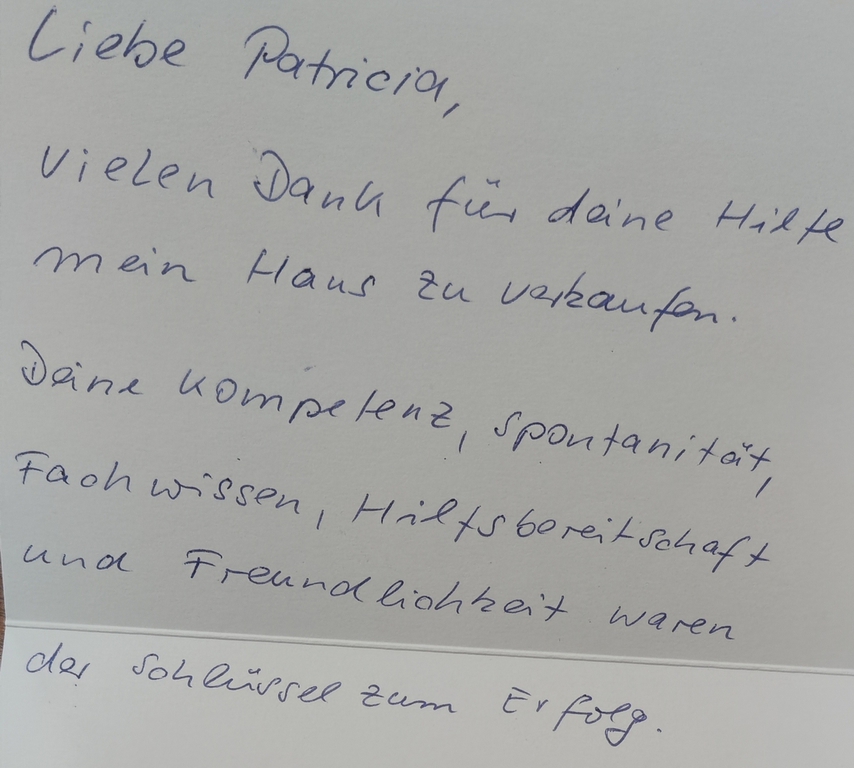 Liebe Patricia,
vielen Dank für deine Hilfe
mein Haus zu verkaufen.
Deine Kompetenz, spontanität,
Fachwissen, Hilfsbereitschaft
und Freundlichkeit waren
der Schlüssel zum Erfolg.